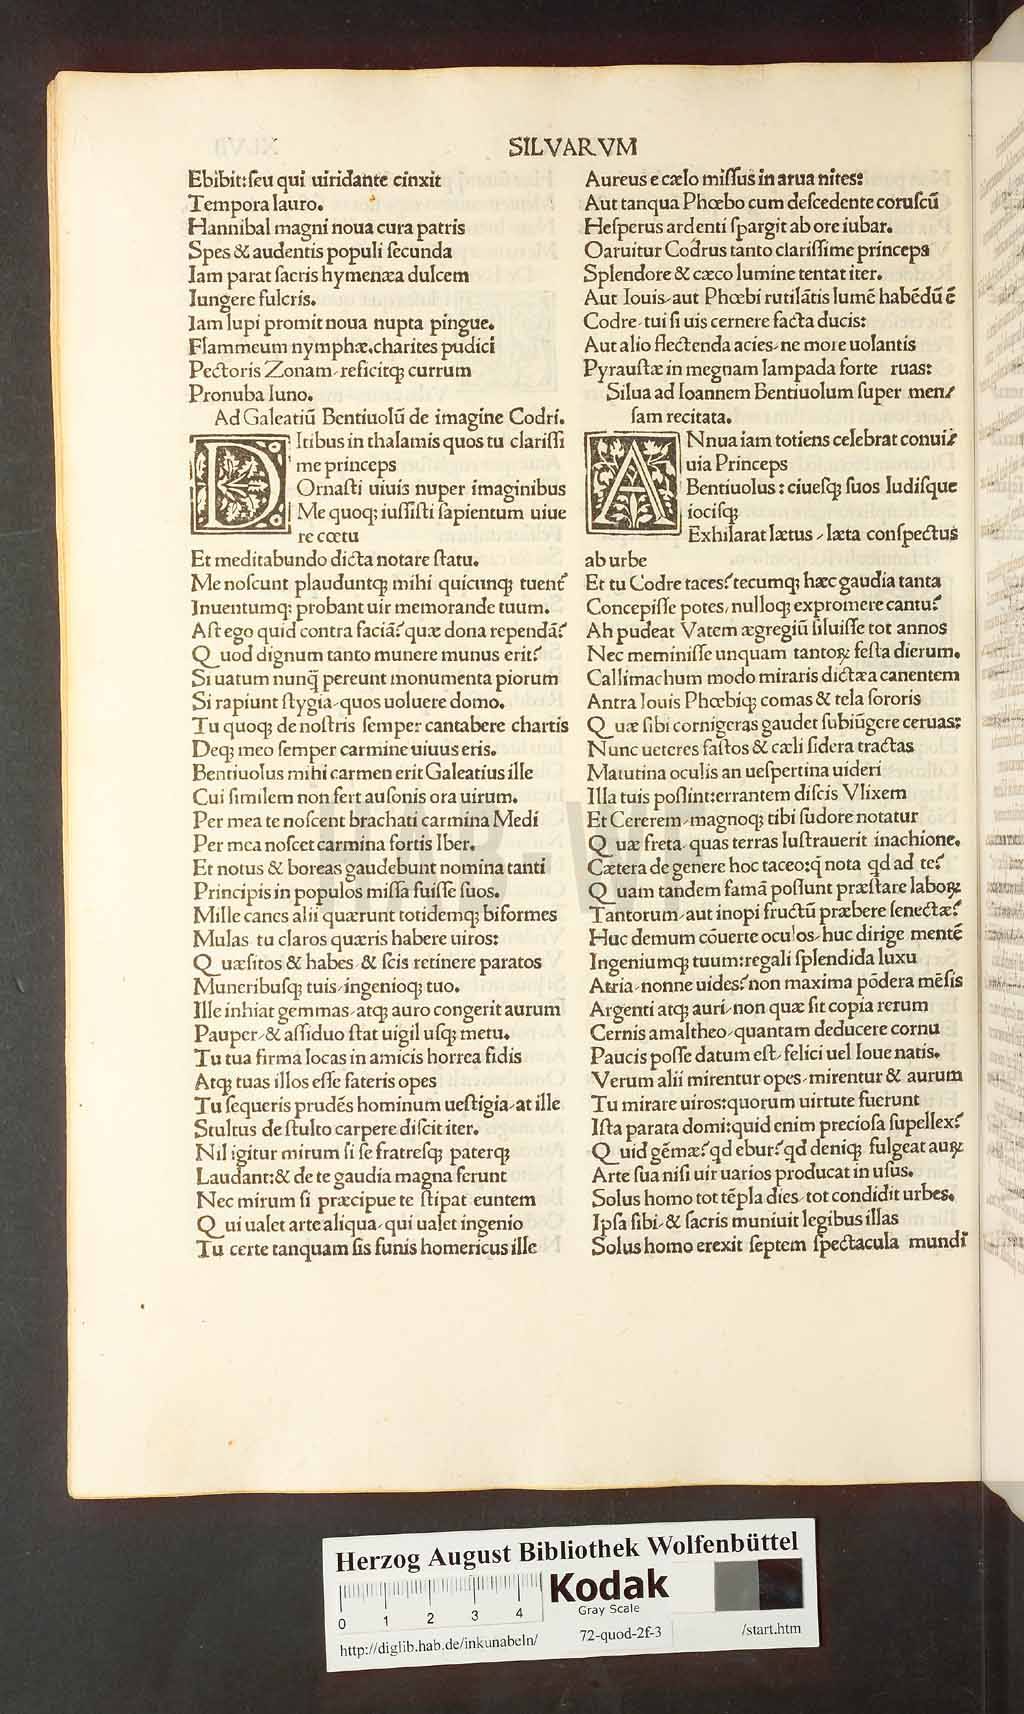 SILVARVM
Ebibit:ſeu qui uiridante cinxit
Tempora lauro.
Hannibal magni noua cura patris
Spes & audentis populi ſecunda
Iam parat ſacris hymenæa dulcem
Iungere fulcris.
Iam lupi promit noua nupta pingue.
Flammeum nymphæ.charites pudici
Pectoris Zonam-reficitqꝫ currum
Pronuba Iuno.
Ad Galeatiū Bentiuolū de imagine Codri.
DItibus in thalamis quos tu clariſſi
me princeps
Ornaſti uiuis nuper imaginibus
Me quoqꝫ iuſſiſti ſapientum uiue
re cœtu
Et meditabundo dicta notare ſtatu.
Me noſcunt plauduntqꝫ mihi quicunqꝫ tuent᷑
Inuentumqꝫ probant uir memorande tuum.
Aſt ego quid contra faciā? quæ dona rependā?
Quod dignum tanto munere munus erit?
Si uatum nunq̄ pereunt monumenta piorum
Si rapiunt ſtygia-quos uoluere domo.
Tu quoqꝫ de noſtris ſemper cantabere chartis
Deqꝫ meo ſemper carmine uiuus eris.
Bentiuolus mihi carmen erit Galeatius ille
Cui ſimilem non fert auſonis ora uirum.
Per mea te noſcent brachati carmina Medi
Per mea noſcet carmina fortis Iber.
Et notus & boreas gaudebunt nomina tanti
Principis in populos miſſa fuiſſe ſuos.
Mille canes alii quærunt totidemqꝫ biformes
Mulas- tu claros quæris habere uiros:
Quæſitos & habes-& ſcis retinere paratos
Muneribuſqꝫ tuis-ingenioqꝫ tuo.
Ille inhiat gemmas-atqꝫ auro congerit aurum
Pauper-& aſſiduo ſtat uigil uſqꝫ metu.
Tu tua firma locas in amicis horrea fidis
Atqꝫ tuas illos eſſe fateris opes
Tu ſequeris prudēs hominum ueſtigia-at ille
Stultus de ſtulto carpere diſcit iter.
Nil igitur mirum ſi ſe fratreſqꝫ paterqꝫ
Laudant:& de te gaudia magna ferunt
Nec mirum ſi præcipue te ſtipat euntem
Qui ualet arte aliqua-qui ualet ingenio
Tu certe tanquam ſis funis homericus ille
Aureus e cælo miſſus in arua nites:
Aut tanqua Phœbo cum deſcedente coruſcū
Heſperus ardenti ſpargit ab ore iubar.
Oaruitur Codrus tanto clariſſime princeps
Splendore & cæco lumine tentat iter.
Aut Iouis-aut Phœbi rutilātis lumē habēdū ē
Codre-tui ſi uis cernere facta ducis:
Aut alio flectenda acies-ne more uolantis
Pyrauſtæ in megnam lampada forte ruas:
Silua ad Ioannem Bentiuolum ſuper men/
ſam recitata.
ANnua iam totiens celebrat conui/
uia Princeps
Bentiuolus : ciueſqꝫ ſuos ludiſque
iociſqꝫ
Exhilarat lætus - læta conſpectus
ab urbe
Et tu Codre taces? tecumqꝫ hæc gaudia tanta
Concepiſſe potes, nulloqꝫ expromere cantu?
Ah pudeat Vatem ægregiū ſiluiſſe tot annos
Nec meminiſſe unquam tantoꝝ feſta dierum.
Callimachum modo miraris dictæa canentem
Antra Iouis Phœbiqꝫ comas & tela ſororis
Quæ ſibi cornigeras gaudet ſubiūgere ceruas:
Nunc ueteres faſtos & cæli ſidera tractas
Matutina oculis an ueſpertina uideri
Illa tuis poſſint:errantem diſcis Vlixem
Et Cererem-magnoqꝫ tibi ſudore notatur
Quæ freta-quas terras luſtrauerit inachione.
Cætera de genere hoc taceo:q̄ nota qd ad te?
Quam tandem famā poſſunt præſtare laboꝝ
Tantorum-aut inopi fructū præbere ſenectæ?
Huc demum cōuerte oculos-huc dirige mentē
Ingeniumqꝫ tuum:regali ſplendida luxu
Atria-nonne uides? non maxima pōdera mēſis
Argenti atqꝫ auri-non quæ ſit copia rerum
Cernis amaltheo-quantam deducere cornu
Paucis poſſe datum eſt-felici uel Ioue natis.
Verum alii mirentur opes-mirentur & aurum
Tu mirare uiros:quorum uirtute fuerunt
Iſta parata domi:quid enim precioſa ſupellex?
Quid gēmæ? qd ebur? qd deniqꝫ fulgeat auꝝ
Arte ſua niſi uir uarios producat in uſus.
Solus homo tot tēpla dies- tot condidit urbes.
Ipſa ſibi-& ſacris muniuit legibus illas
Solus homo erexit ſeptem ſpectacula mundi
HAB-WF
Herzog August Bibliothek Wolfenbüttel
Kodak
Gray Scale
0 1 2 3 4
http://diglib.hab.de/inkunabeln/ 72-quod-2f-3 /start.htm